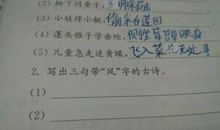 (2) 松下问童子，
(3) 小娃撑小艇，偷采白莲回
(4) 蓬头稚子学垂纶，侧坐莓苔草映身
(5) 儿童急走追黄蝶，飞入菜花无处寻
2. 写出三句带“风”字的古诗。
(1)
(2)